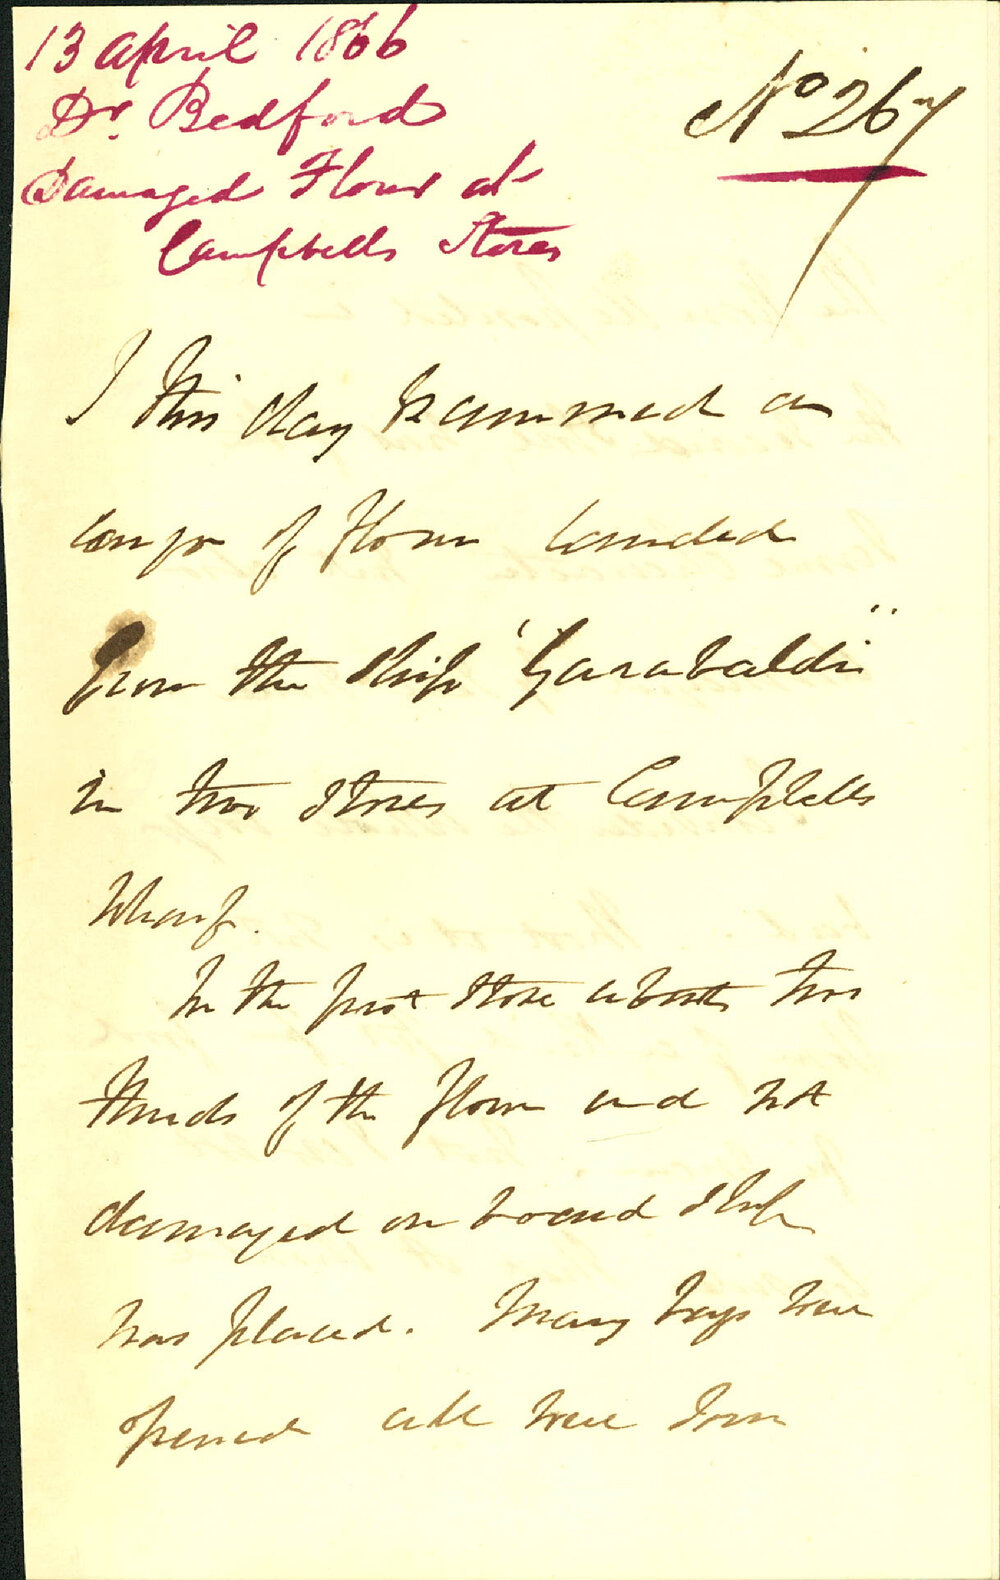 13 April 1866
Dr. Bedford
Damaged Flour at
Campbells Stores
No 267
I this day Examined a
Cargo of flour landed
from the Ship "Garabaldi"
in two Stores at Campbells
Wharf.
In the first Store about two
thirds of the flour and not
damaged on board Ship
was placed. Many bags were
opened all were Sour